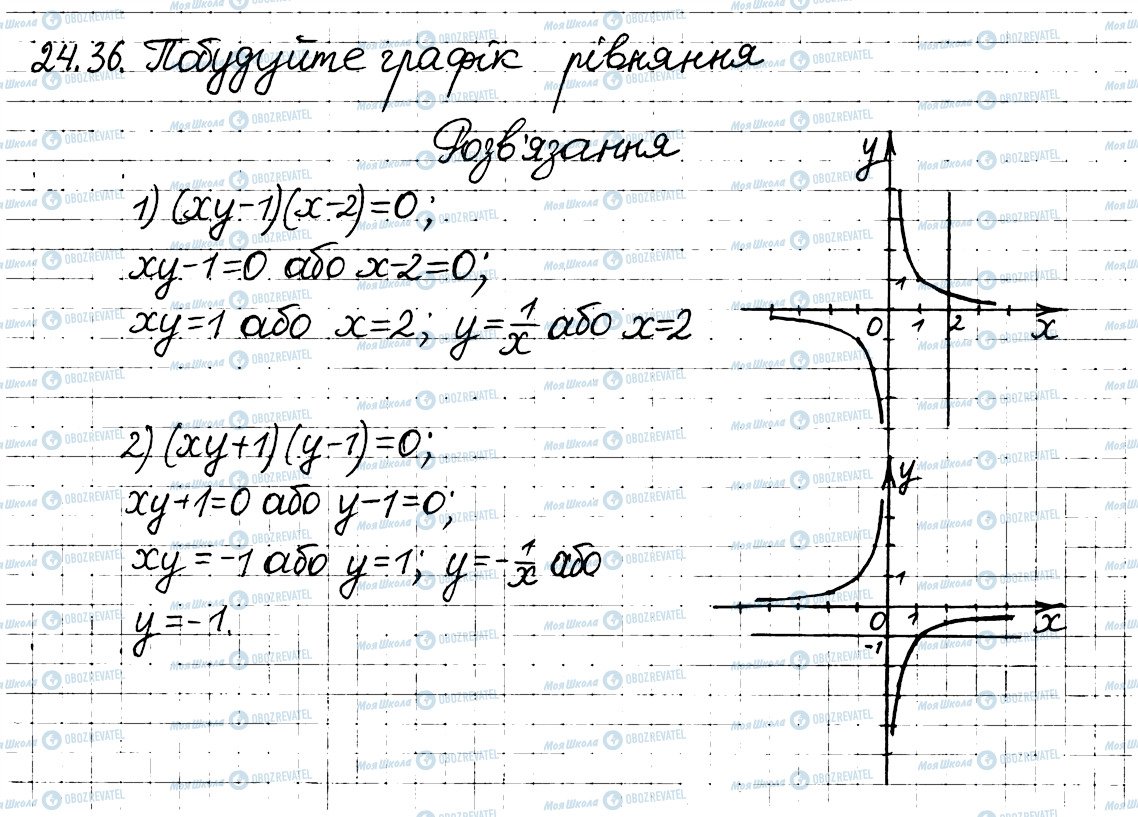 24.36. Побудуйте графік рівняння
Розв'язання
1) (xy-1)(x-2)=0;
xy-1=0 або x-2=0;
xy=1 або x=2; y=1/x або x=2
y
1
0 1 2 x
2) (xy+1)(y-1)=0;
xy+1=0 або y-1=0;
xy=-1 або y=1; y=-1/x або
y=-1.
y
1
0 1 x
-1
МояШкола OBOZREVATEL